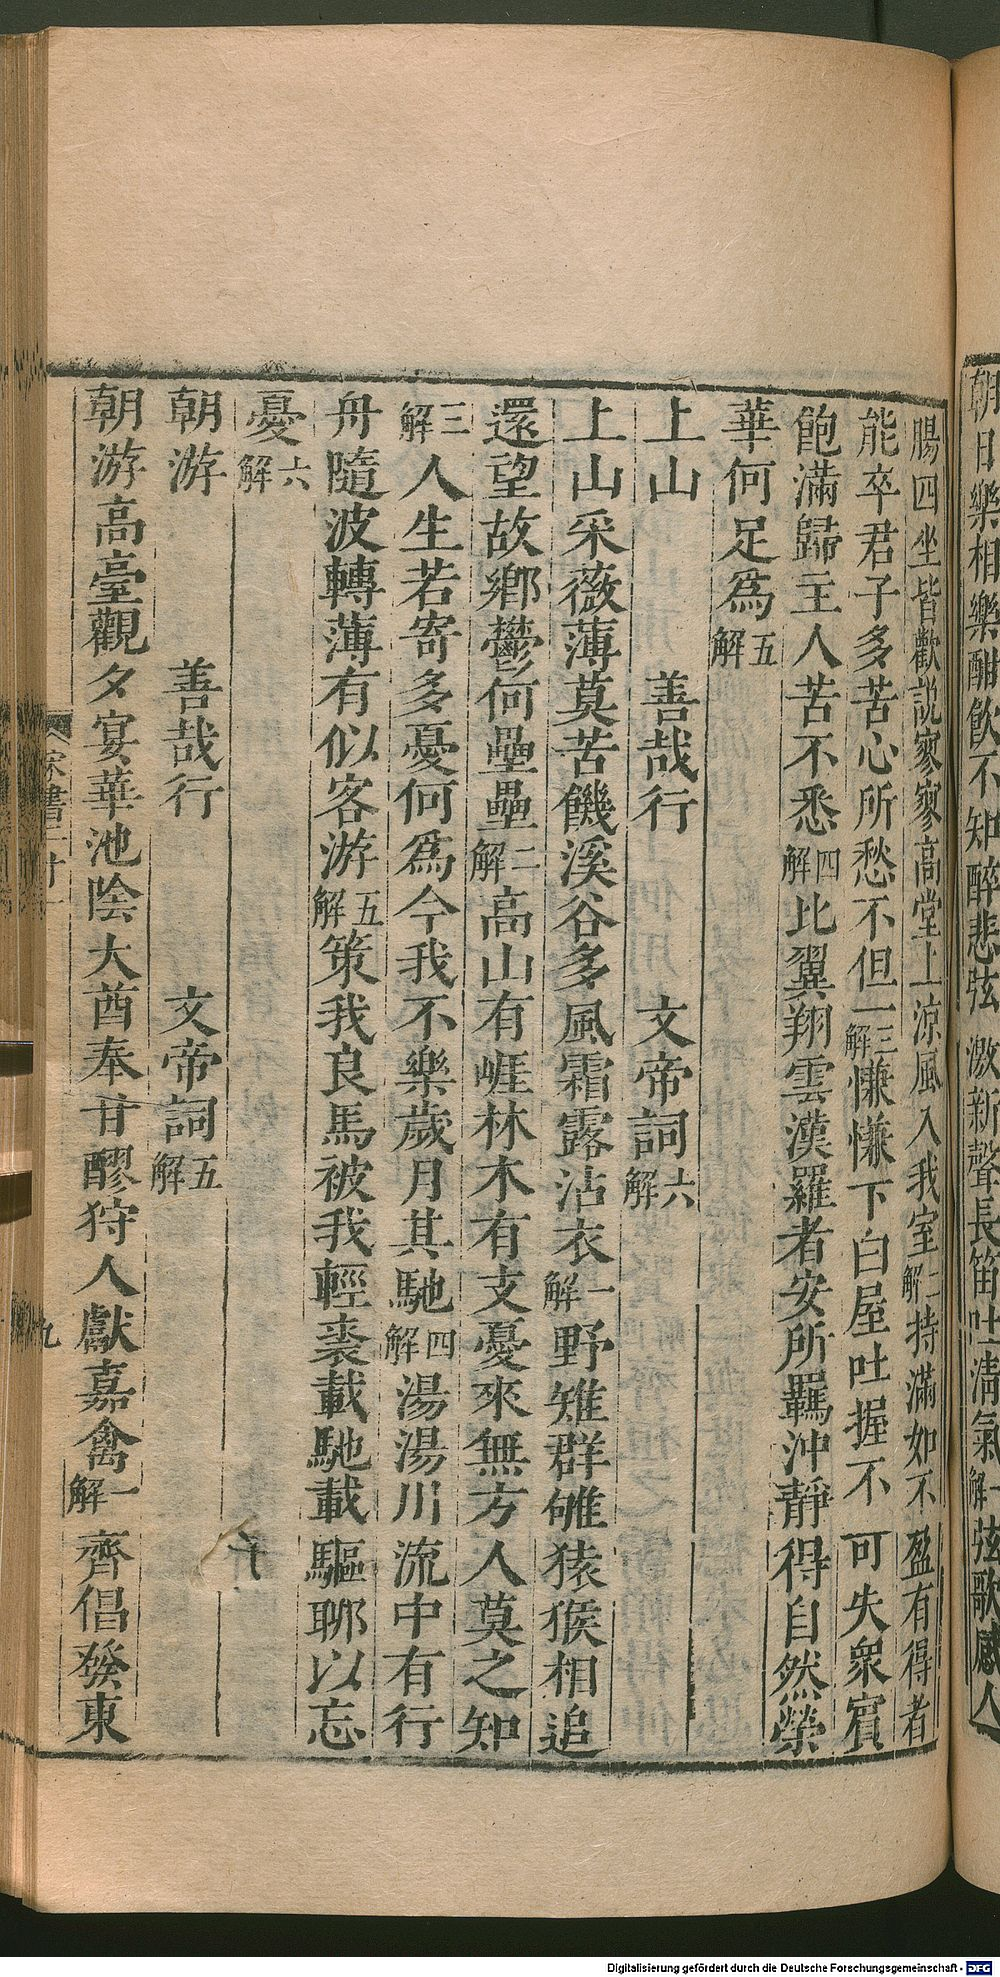 朝日樂相樂酣飲不知醉悲弦激新聲長笛吐清氣一解弦歌感人
腸四坐皆歡說寥寥高堂上涼風入我室二解持滿如不盈有得者
能卒君子多苦心所愁不但一三解慊慊下白屋吐握不可失衆賓
飽滿歸主人苦不悉四解比翼翔雲漢羅者安所羈沖靜得自然榮
華何足爲五解
上山 善哉行 文帝詞六解
上山采薇薄莫苦饑溪谷多風霜露沾衣一解野雉群雊猿猴相追
還望故鄉鬱何壘壘二解高山有崖林木有支憂來無方人莫之知
三解人生若寄多憂何爲今我不樂歲月其馳四解湯湯川流中有行
舟隨波轉薄有似客游五解策我良馬被我輕裘載馳載驅聊以忘
憂六解
朝游 善哉行 文帝詞五解
朝游高臺觀夕宴華池陰大酋奉甘醪狩人獻嘉禽一解齊倡發東
宋書二十一
九
Digitalisierung gefördert durch die Deutsche Forschungsgemeinschaft - DFG